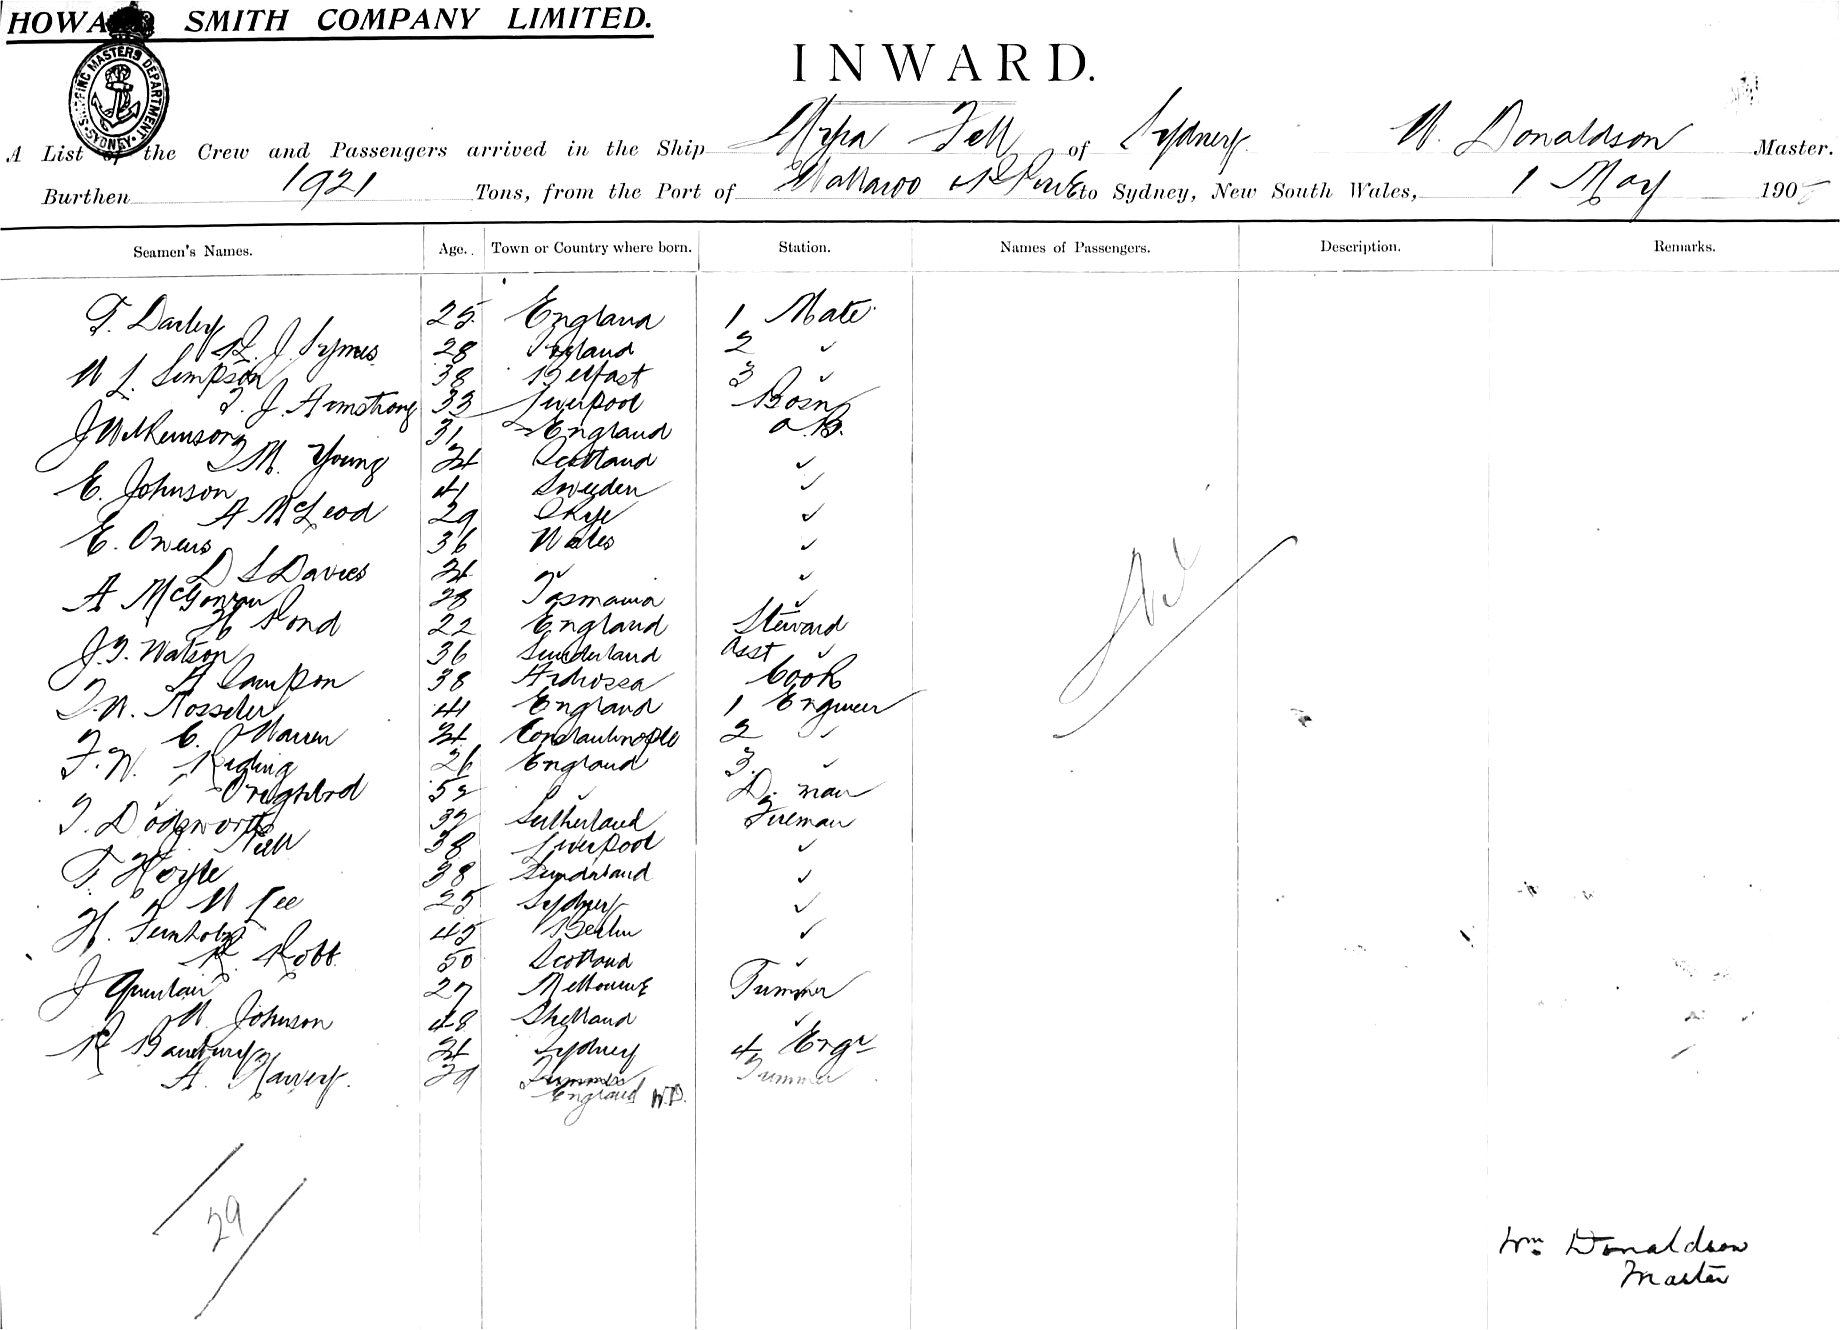 HOWARD SMITH COMPANY LIMITED.
SHIPPING MASTERS DEPARTMENT SYDNEY
INWARD.
A List of the Crew and Passengers arrived in the Ship Fell of Sydney W. Donaldson Master.
Burthen 1921 Tons, from the Port of Wallaroo & Pt Pirie to Sydney, New South Wales, 1 May 190
Seamen's Names. Age. Town or Country where born. Station. Names of Passengers. Description. Remarks.
T. Darley 25 England 1 Mate
J. Symes 28 2 "
W L. Simpson 38 Belfast 3 "
F. J. Armstrong 33 Liverpool Bosn
J Wilkinson 31 England A.B.
M. Young 24 Scotland "
E. Johnson 41 Sweden "
A McLeod 29 Skye "
E. Owens 36 Wales "
D S Davies 24 " "
A McGowan 28 Tasmania "
H Pond 22 England Steward
J. F. Watson 36 Sunderland Asst "
A Sampson 38 Ardrossa Cook
T. W. Rosseter 41 England 1 Engineer
C. Warren 24 Constantinople 2 "
F. W. Riding 26 England 3 "
52 " D. man
T. Dodgworth 32 Sutherland Fireman
" Neill 38 Liverpool "
T. Hoyle 38 Sunderland "
W Lee 25 Sydney "
H. Fernholz 45 Berlin "
R. Robb 50 Scotland "
J Quinlan 27 Melbourne Trimmer
W. Johnson 48 Shetland "
R Banbury 24 Sydney 4 Engr
A. Harvey. 29 Trimmer Trimmer
England W.D.
Nil
29
Wm Donaldson
Master